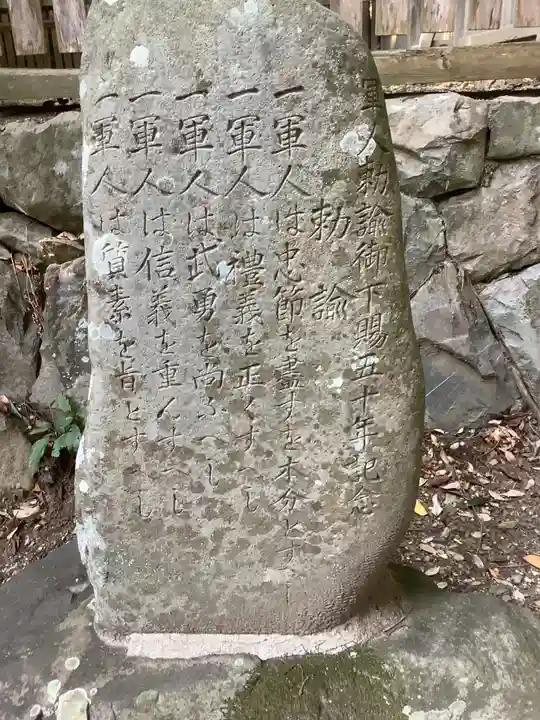 軍人勅諭御下賜五十年記念
勅諭
一軍人は忠節を盡すを本分とすべし
一軍人は禮義を正くすへし
一軍人は武勇を尚ふへし
一軍人は信義を重んすへし
一軍人は質素を旨とすへし